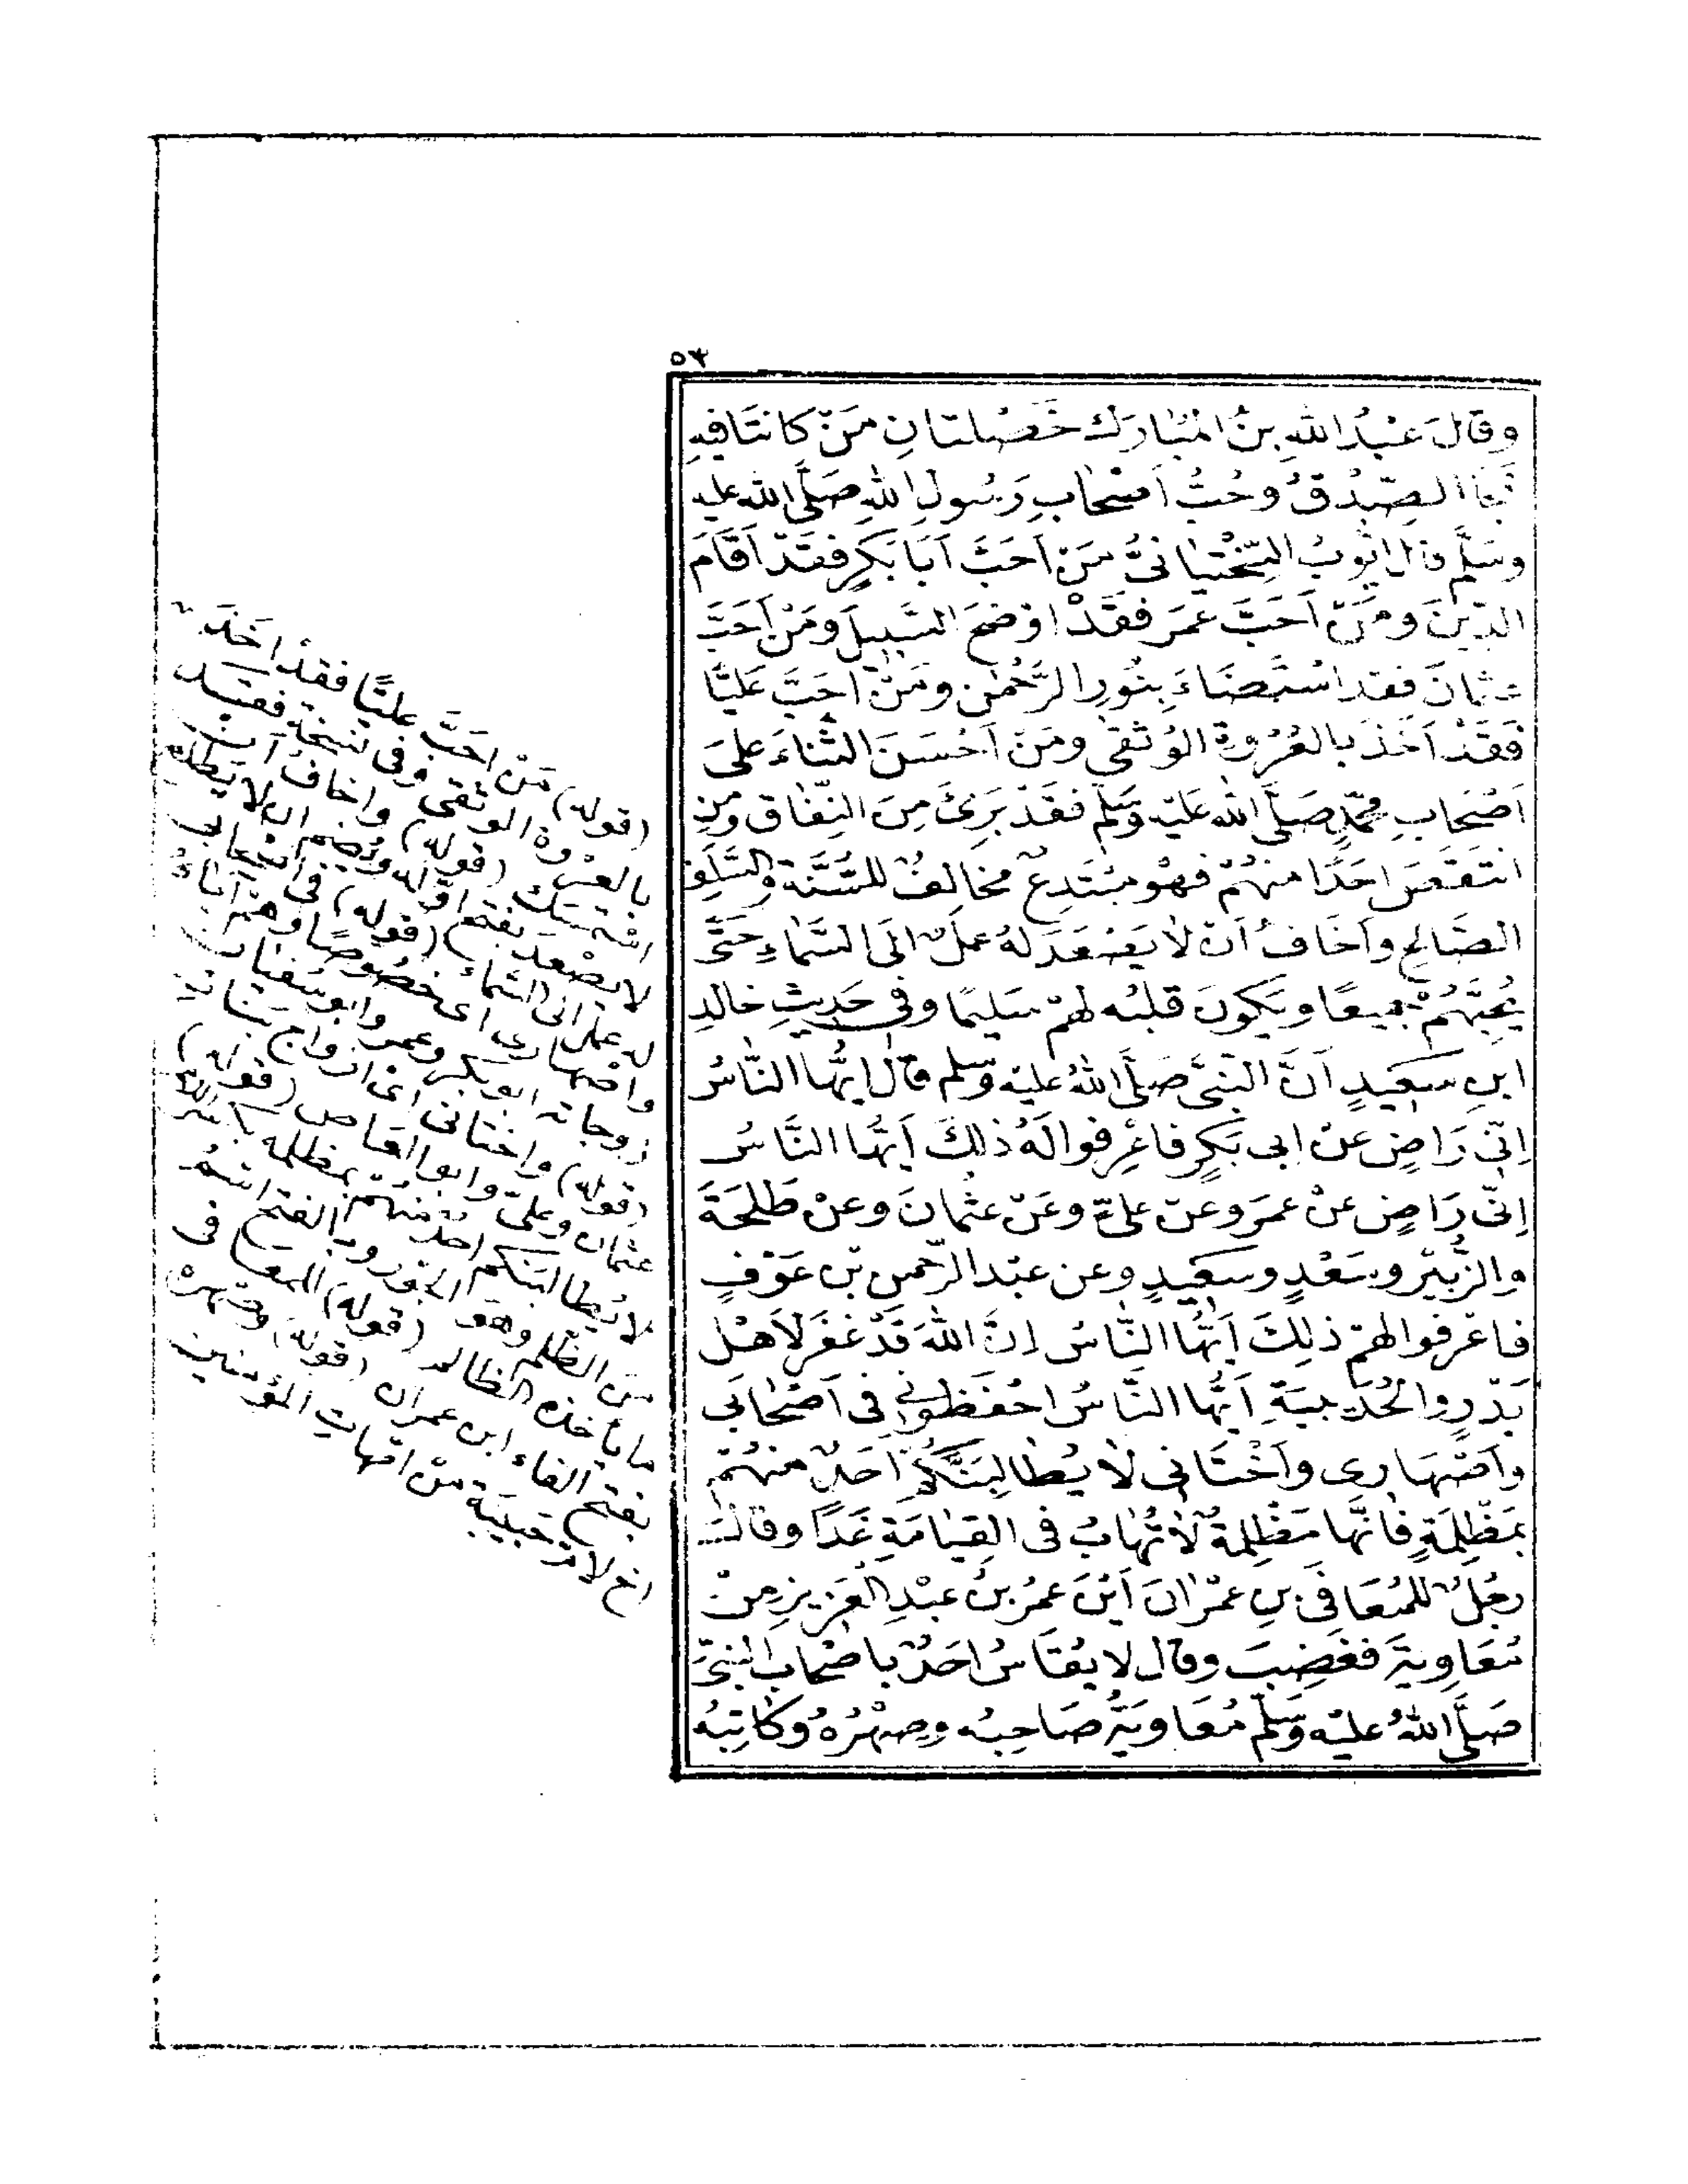 ٥٣
وقالَ عَبْدُ اللهِ بنُ المُبَارَك خَصْلتانِ مَنْ كانتَا فيهِ
نَجَا الصِّدْقُ وحُبُّ اَصْحَابِ رَسُولِ اللهِ صَلَّى الله عليه
وسَلَّم قال ايّوبُ السَّخْتِيانىُّ مَنْ اَحَبَّ اَبَا بَكرٍ فقَدْ اَقَامَ
الدّينَ ومَنْ اَحَبَّ عمَرَ فقَدْ اوْضَحَ السَّبيلَ ومَنْ اَحَبَّ
عثمانَ فقد اسْتَضَاءَ بِنُورِ الرَّحْمٰنِ ومَنْ احَبَّ عَليًّا
فقَدْ اَخَذَ بالعُرْوَةِ الوُثقى ومَنْ اَحْسَنَ الثَّناءَ علىَ
اَصْحَابِ محمّدٍ صَلَّى الله عَليْه وَسَلّم فقَدْ بَرِئَ مِنَ النِّفَاق ومَنِ
انتقَصَ احَدًا منهُمْ فهُو مبْتَدِعٌ مخالِفٌ للسُّنَّة والسَّلَفِ
الصَّالحِ واَخَافُ اَنْ لاَ يَصْعَدَ لهُ عملٌ الَى السَّمَاءِ حَتَّى
يُحِبَّهُمْ جميعًا ويَكونَ قلبُه لهمْ سَليمًا وفى حَديثِ خالدِ
ابنِ سعِيدٍ اَنَّ النبىَّ صَلَّى اللهُ عليْه وَسَلم قالَ ايُّها النَّاسُ
اِنّى رَاضٍ عَنْ ابى بَكرٍ فاعْرِفوا لَهُ ذلكَ اَيُّها النَّاسُ
اِنّى رَاضٍ عَنْ عمَرَ وعنْ علىٍّ وعَنْ عثمانَ وعنْ طَلحَةَ
والزُّبَيْرِ وسَعْدٍ وسعِيدٍ وعن عبْد الرَّحمن بْن عَوْفٍ
فاعْرِفوا لهمْ ذلِكَ اَيُّها النَّاسُ اِنَّ اللهَ قَدْ غفَرَ لاَهْل
بَدْرٍ والحُدَيبيَةِ اَيُّها النَّاسُ احْفَظونى فى اَصْحَابى
واَصْهارى واَخْتَانى لاَ يُطالِبَنَّكمْ اَحَدٌ منهُمْ
بمَظْلِمَةٍ فانَّها مَظْلِمةٌ لاَ تُوهَبُ فى القِيامَةِ غَدًا وقالَ
رجُلٌ للمُعَافَى بنِ عمْرَانَ اَيْنَ عمَرُ بنُ عبْدِ العَزيزِ مِنْ
مُعَاوِيةَ فغَضِبَ وقال لا يُقَاسُ احَدٌ باَصْحَابِ النبىِّ
صَلَّى اللهُ عليْه وَسَلّم مُعَاويَةُ صَاحِبُه وصِهْرُهُ وكَاتِبُهُ
(قوله) مَنْ احَبَّ عليًّا فقدْ اخَذَ
بالعرْوة الوثقى وفى نسخة فقد
استمسك (قوله) واخاف ان
لا يصْعد بفتح اوّله وبضم اى لا يطلع
له عمل الى السّماء (قوله) فى اصْحابى
واصْهارى اى خصُوصًا وهم آباءُ
زوجاته ابو بكر وعمر وابو سفيان
(قوله) واختانى اى ازواج بناته
عثمان وعلىّ وابو العاص (قوله)
لا يُطالبنكم احدٌ منهُمْ بمظلمه بكسر اللام
من الظلم وهو الجَور وبالفتح اسْمُ
ما ياخذه الظالم (قوله) للمعافى
بفتح الفاء ابن عمران (قوله) وصهرهُ
اخ لام حبيبة منْ امّهاتِ المؤمنين